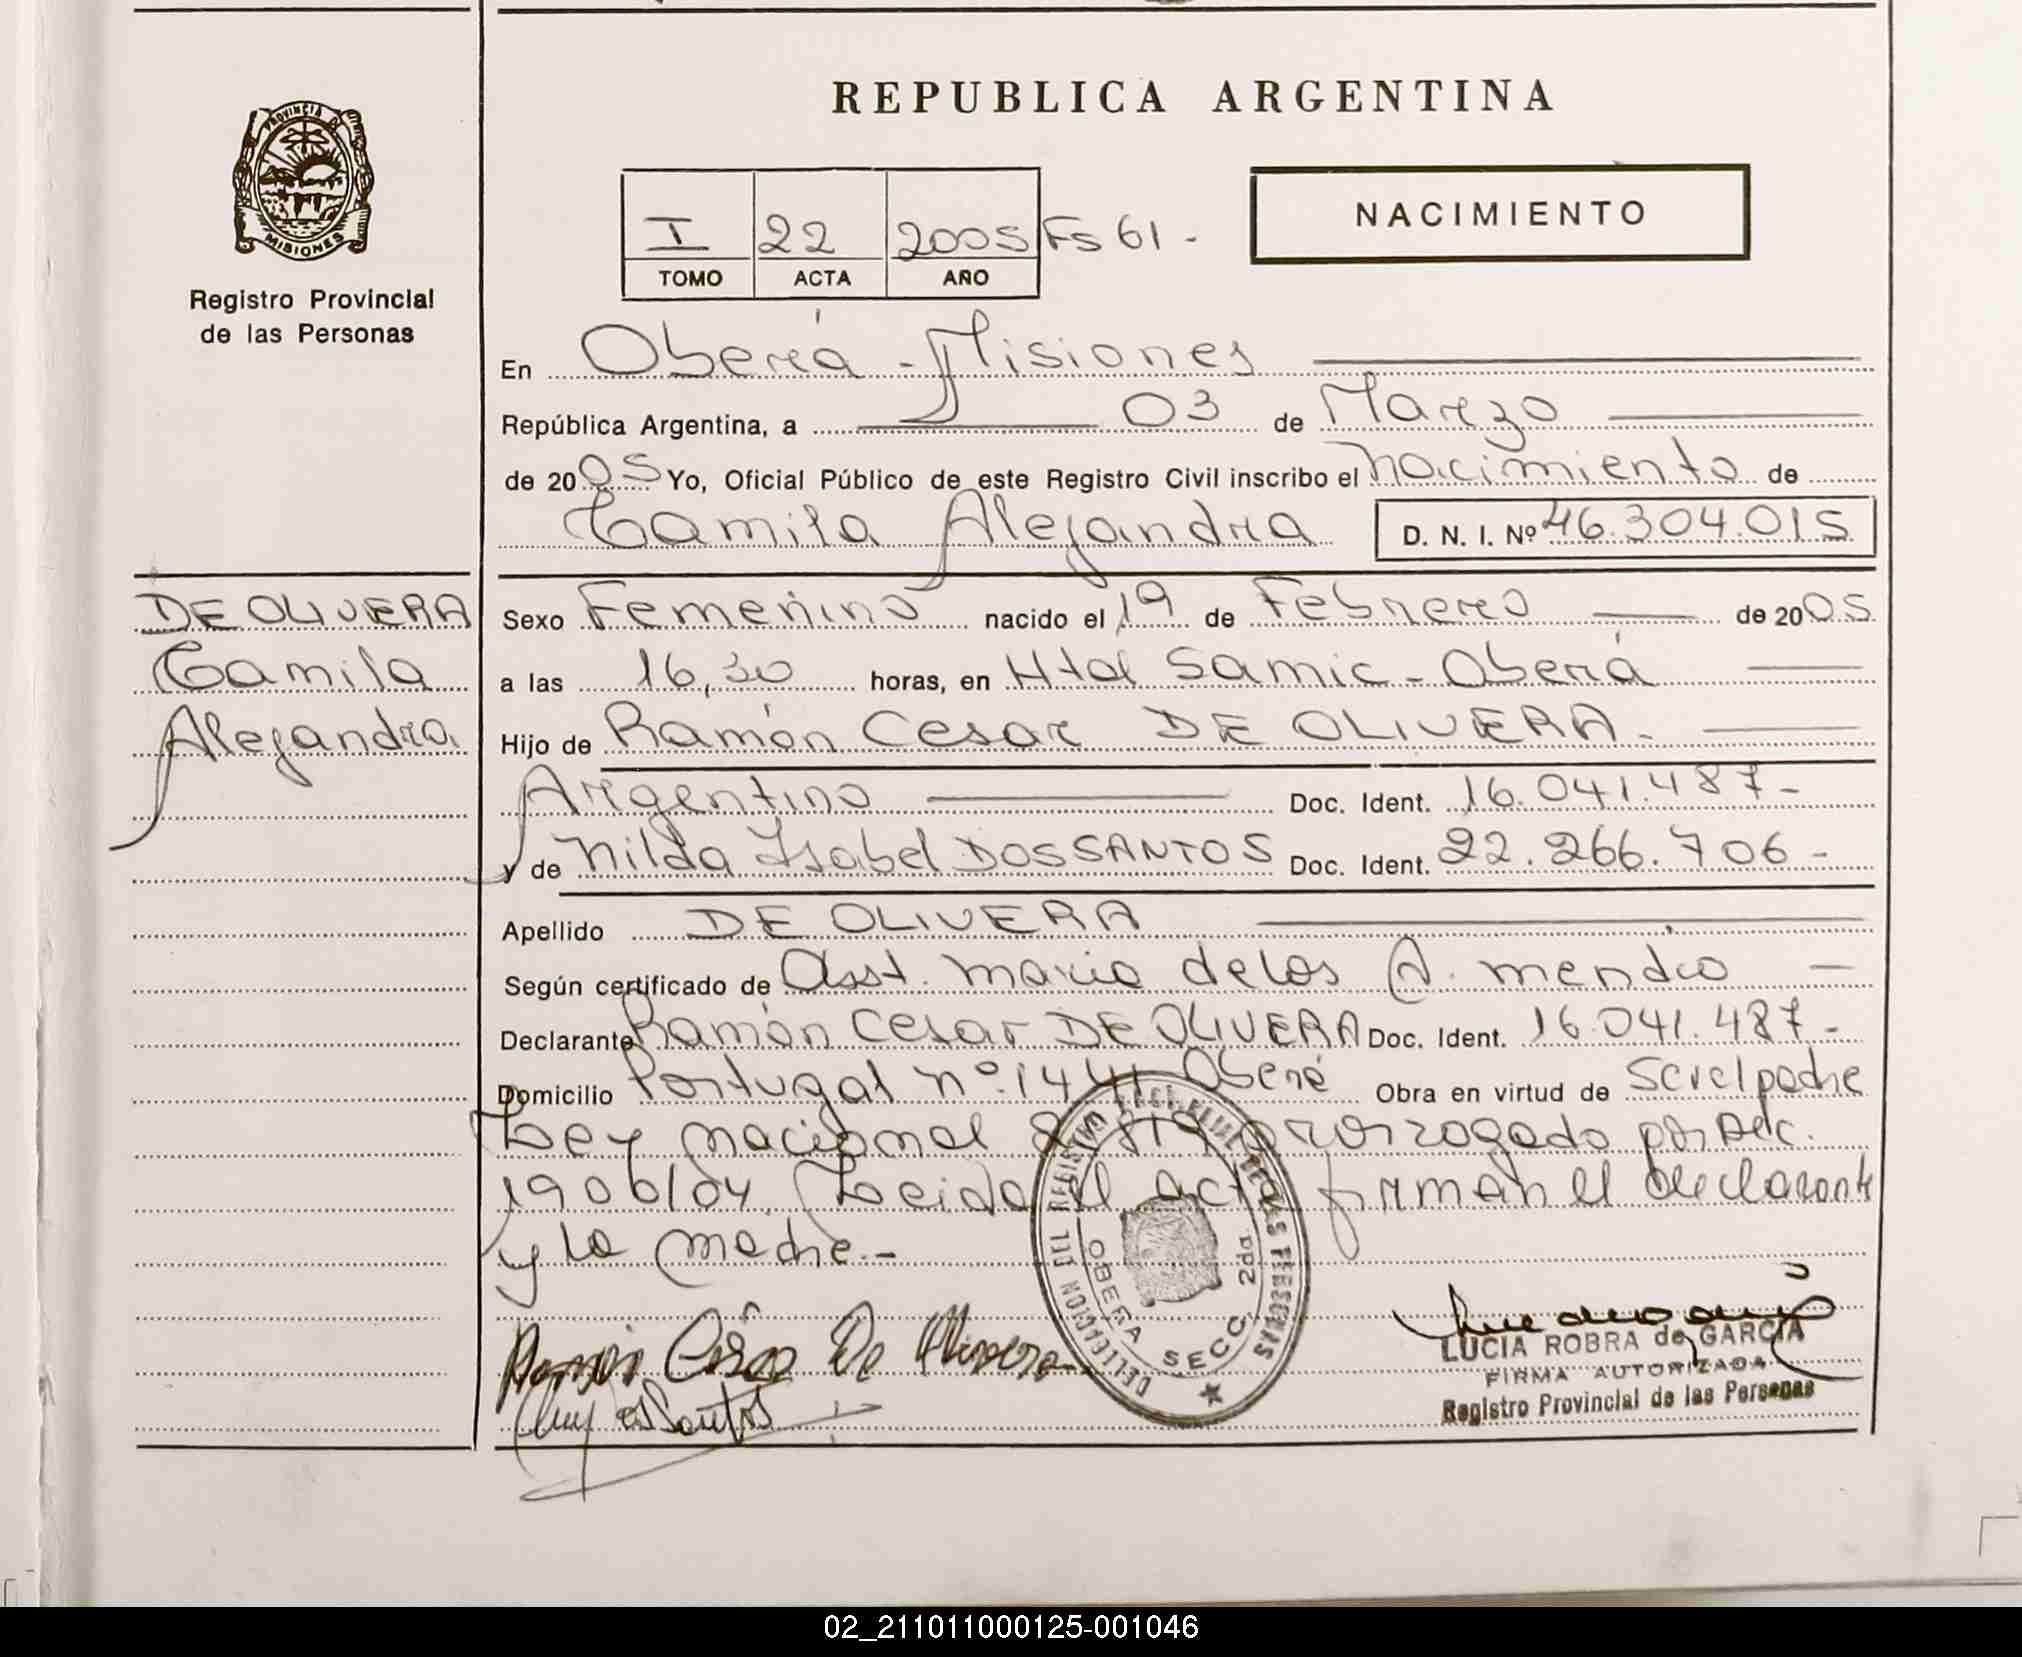 REPUBLICA ARGENTINA
PROVINCIA DE
MISIONES
Registro Provincial
de las Personas
I 22 2005 Fs 61 -
TOMO ACTA AÑO
NACIMIENTO
En Oberá - Misiones
República Argentina, a 03 de Marzo
de 2005 Yo, Oficial Público de este Registro Civil inscribo el nacimiento de
Camila Alejandra D. N. I. Nº 46.304.015
DE OLIVERA
Camila
Alejandra
Sexo Femenino nacido el 19 de Febrero de 2005
a las 16,30 horas, en Htal Samic - Oberá
Hijo de Ramón Cesar DE OLIVERA.
Argentino Doc. Ident. 16.041.487-
y de Nilda Isabel DOSSANTOS Doc. Ident. 22.266.706-
Apellido DE OLIVERA
Según certificado de Obst. Maria de los A.
Declarante Ramón Cesar DE OLIVERA Doc. Ident. 16.041.487-
Domicilio Portugal nº 1441 Oberá Obra en virtud de padre
Ley nacional prorrogado por Dec.
1906/04. Leida el acta firman el declarante
y la madre.-
Ramón César De Olivera
DELEGACION DEL REGISTRO PROVINCIAL DE LAS PERSONAS
OBERA SECC. 2da
LUCIA ROBRA de GARCIA
FIRMA AUTORIZADA
Registro Provincial de las Personas
02_211011000125-001046